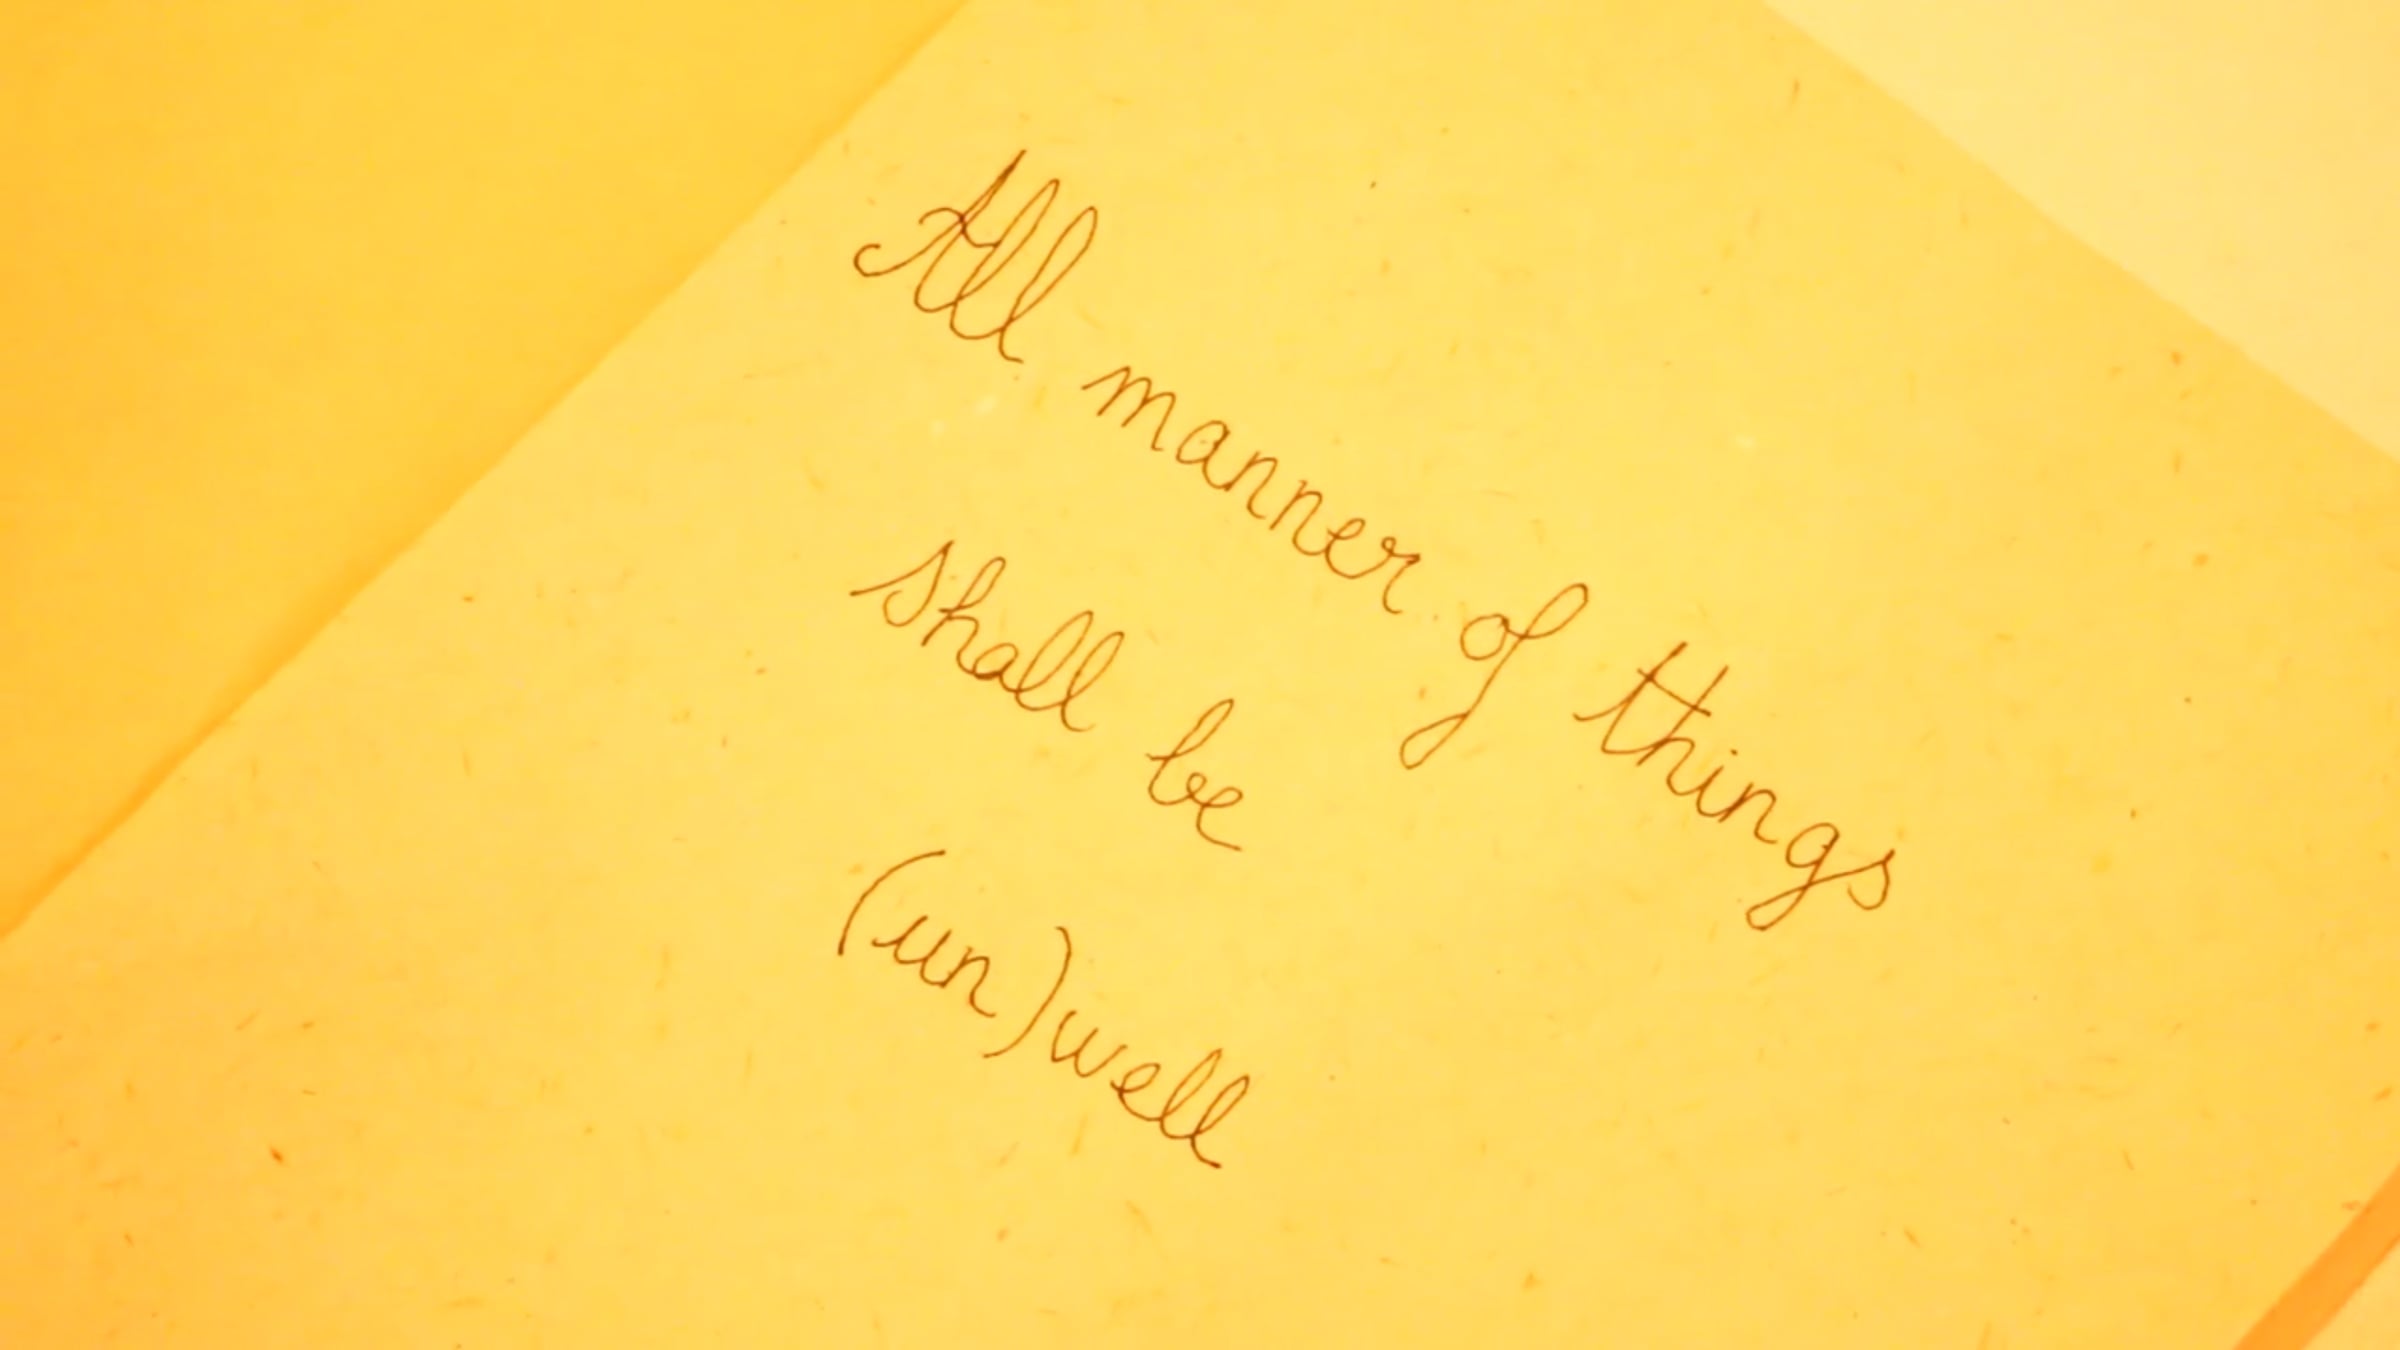 All manner of things
shall be
(un)well